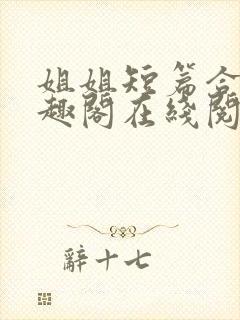 姐姐短篇合
趣阁在线阅
辞十七